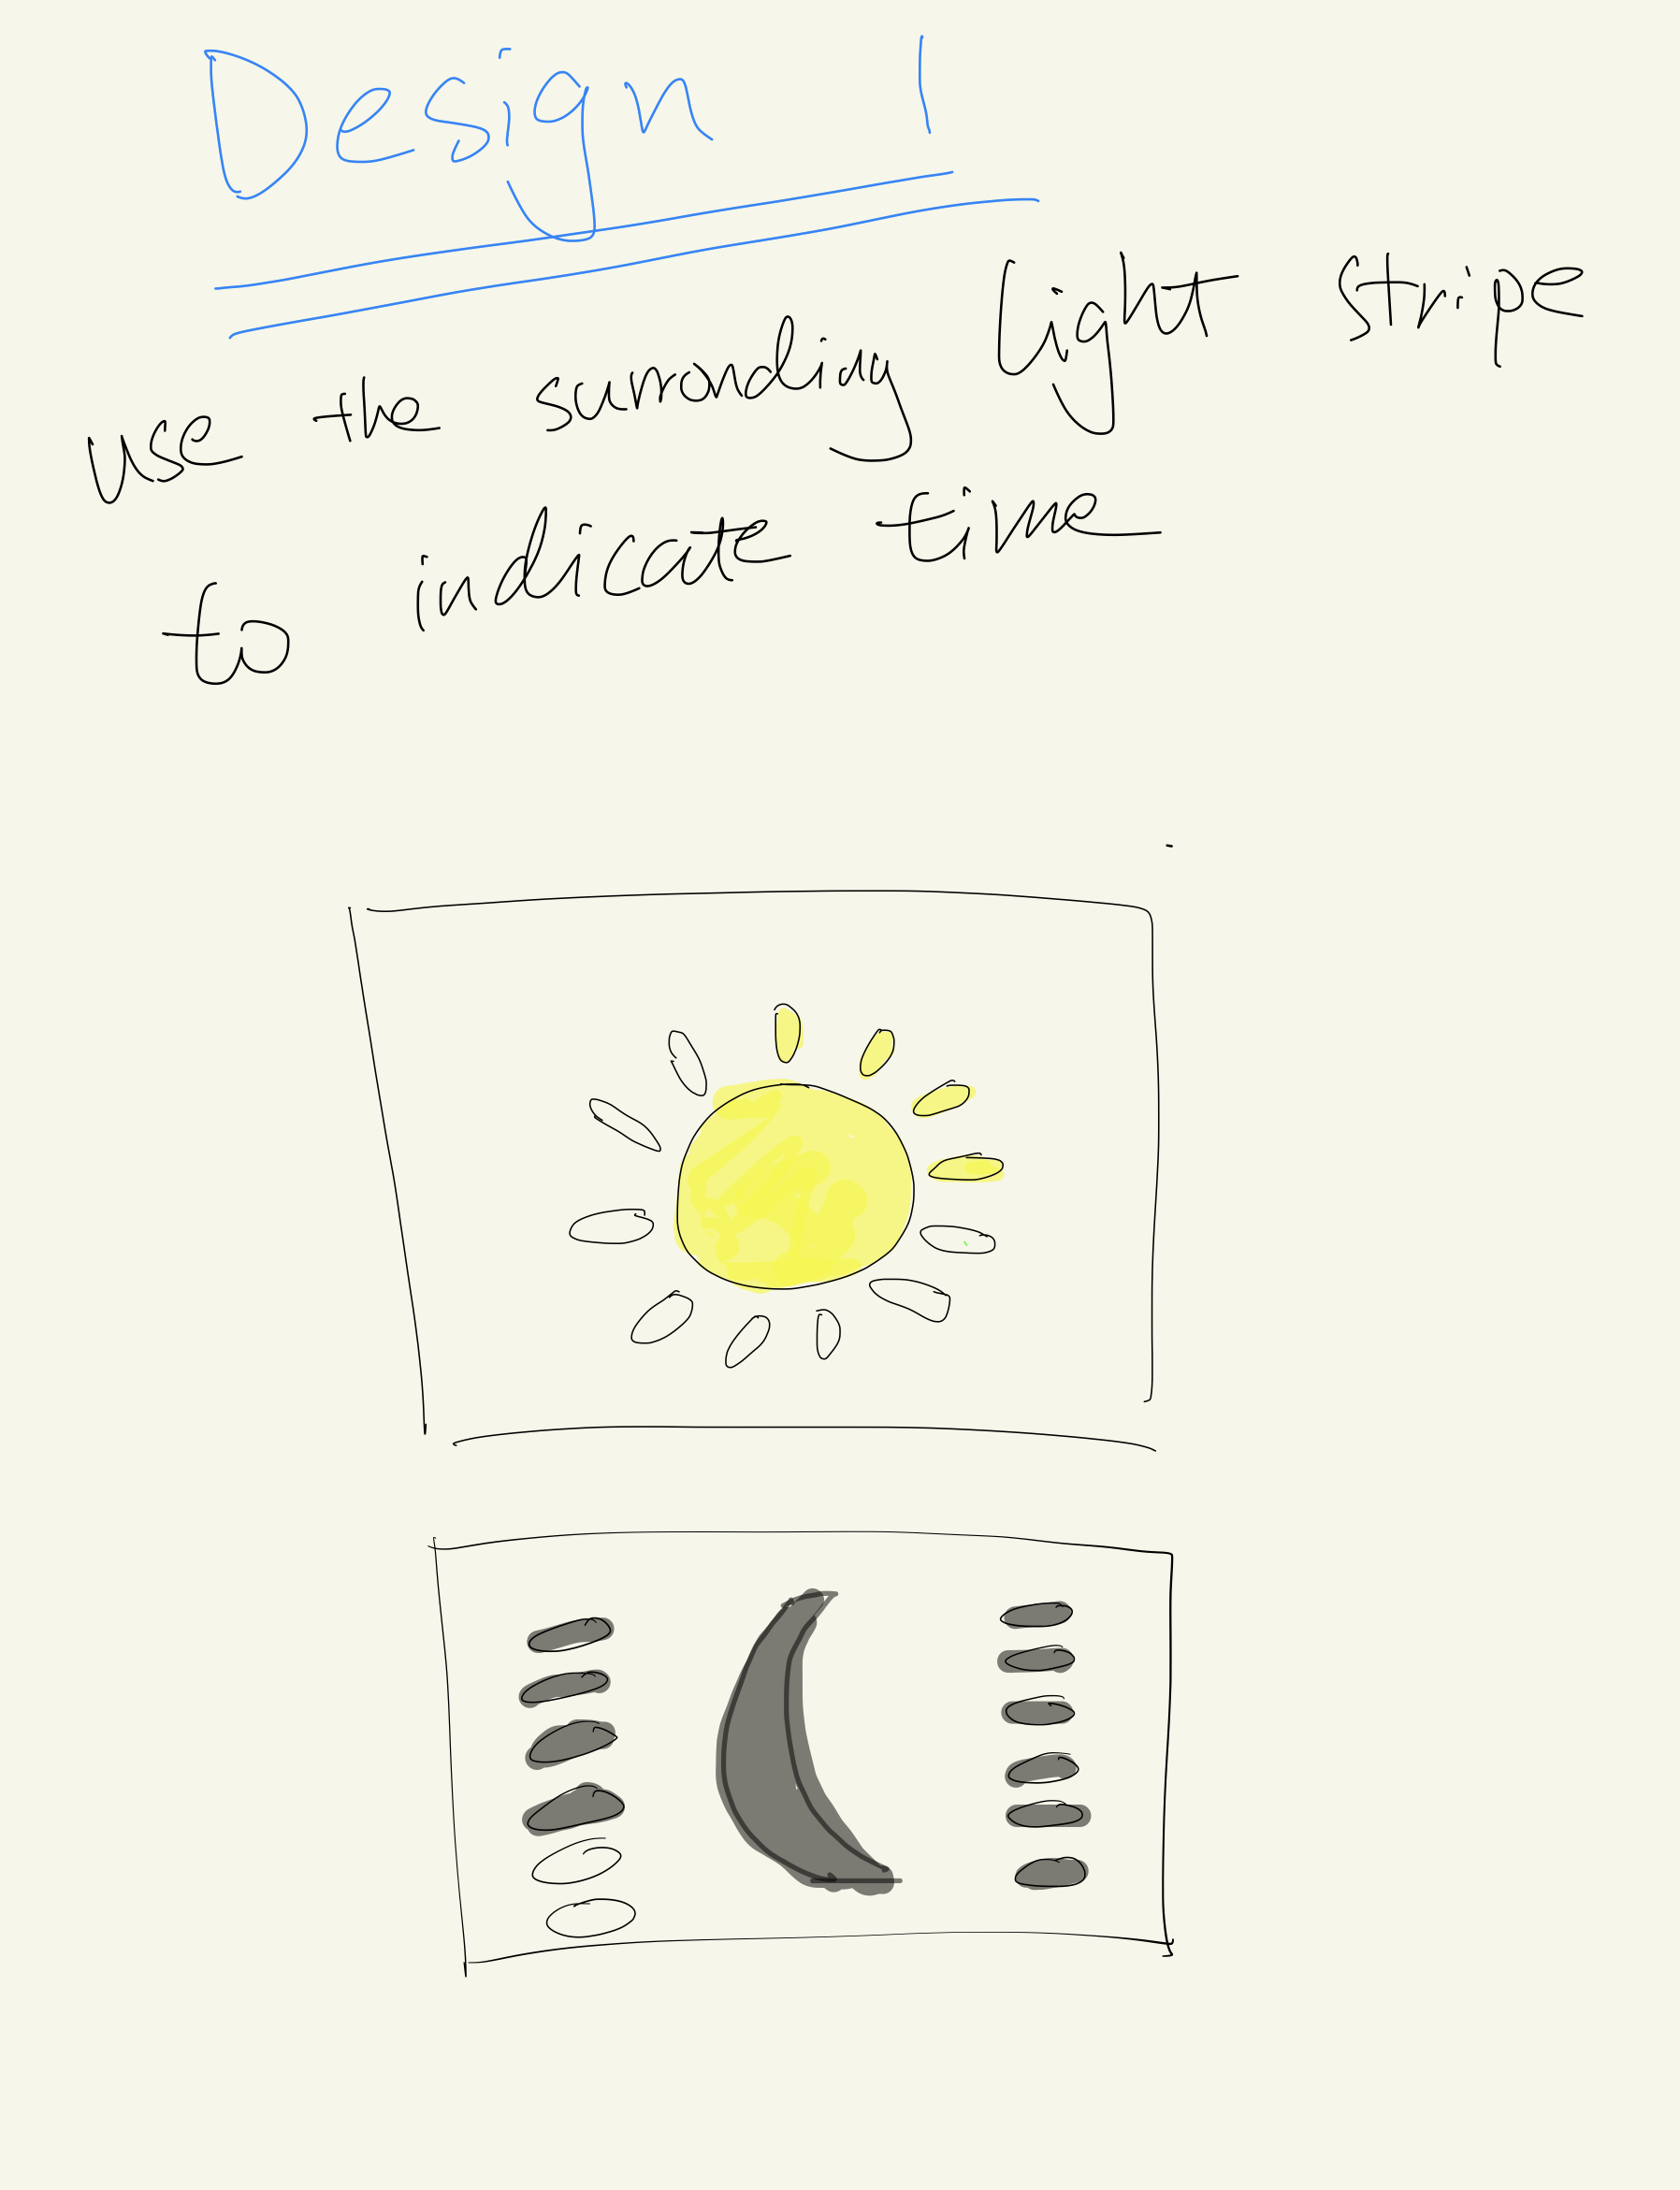 Design 1
use the surronding light stripe
to indicate time